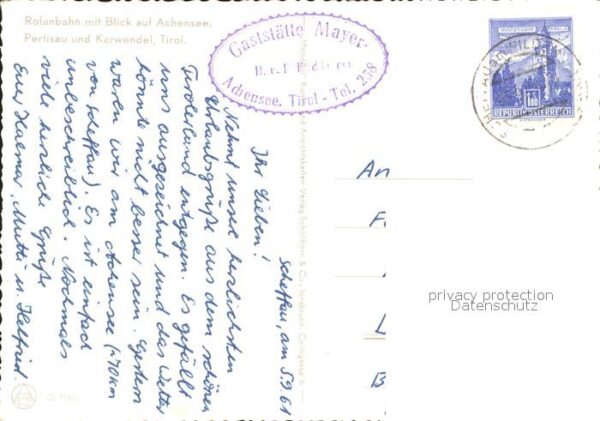 Rofanbahn mit Blick auf Achensee,
Pertisau und Karwendel, Tirol.
Gaststätte Mayer
Achensee, Tirol - Tel. 258
1.80
REPUBLIK ÖSTERREICH
Scheffau, am 5.9.61
Ihr Lieben!
Nehmt unsre herzlichsten
Urlaubsgrüße aus dem schönen
Tirolerland entgegen. Es gefällt
uns ausgezeichnet und das Wetter
könnte nicht besser sein. Gestern
waren wir am Achensee (~70km
von Scheffau). Es ist einfach
unbeschreiblich. Nochmals
viele herzliche Grüße
Eure Mutti u.
An
privacy protection
Datenschutz